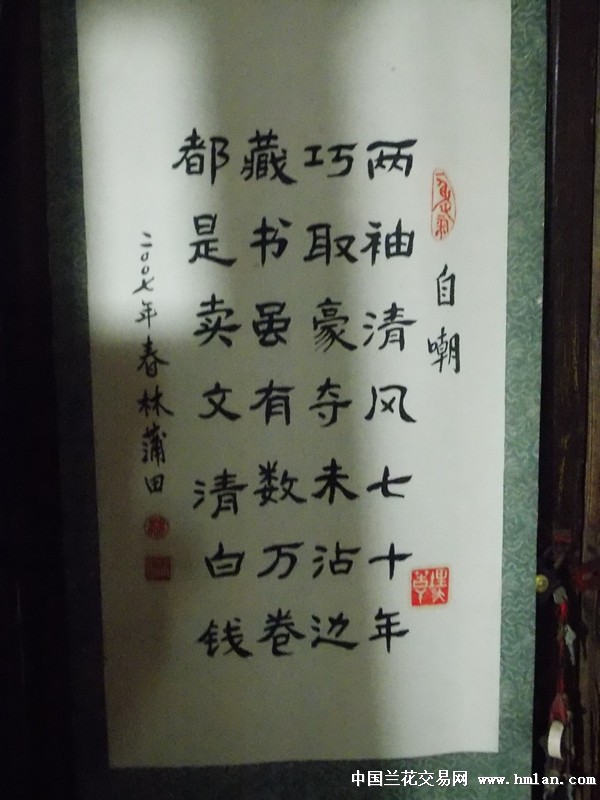 自嘲
两袖清风七十年
巧取豪夺未沾边
藏书虽有数万卷
都是卖文清白钱
二〇〇七年春林蒲田
中国兰花交易网 www.hmlan.com